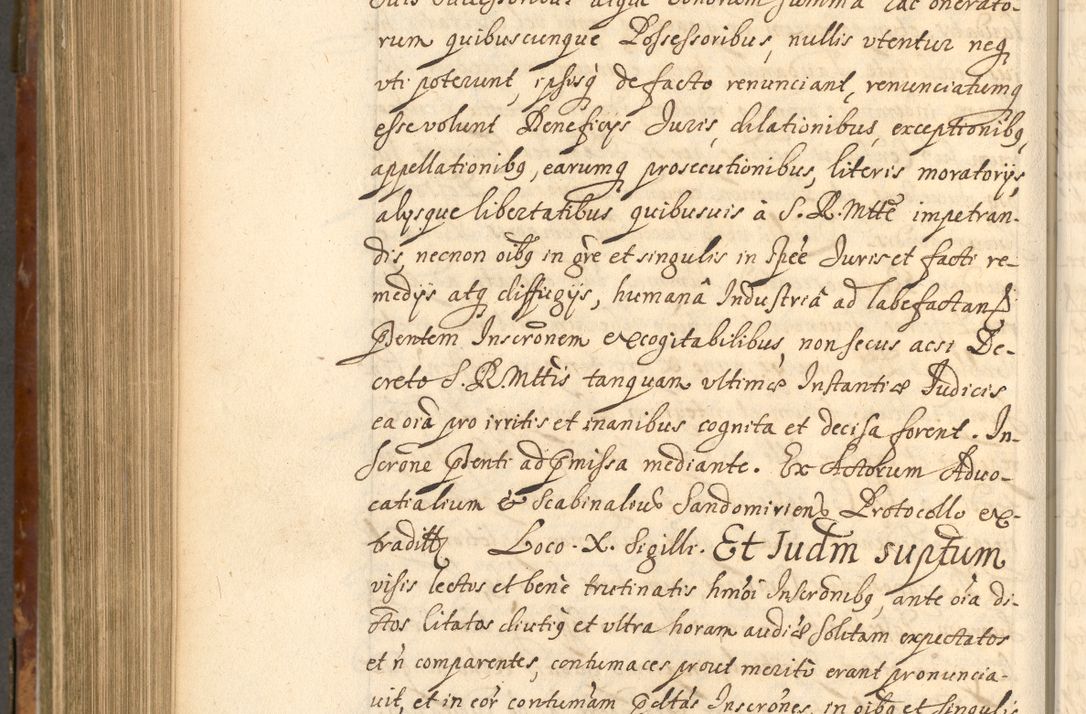 suis Successoribus atque bonorum summa hac onerato-
rum quibuscunque Possessoribus, nullis vtentur neq
vti poterunt, ipsisq de facto renunciant, renunciatumq
esse volunt Beneficijs Iuris, dilationibus, exceptionibq,
appellationibq, earumq prosecutionibus, literis moratorijs,
alijsque libertatibus quibusuis à S. R. Mtte impetran-
dis, necnon oibq in gre et singulis in spée Iuris et facti re-
medijs atq diffugijs, humanâ Industriâ ad labefactand
pntem Inscronem excogitabilibus, non secus acsi De-
creto S. R. Mttis tanquam vltimæ Instantiæ Iudicis
ea oia pro irritis et inanibus cognita et decisa forent. In-
scrone pnti ad pmissa mediante. Ex Actorum Advo-
catialium & Scabinaliu Sandomirien Protocollo ex-
traditt Loco. X. Sigilli. Et Iudm suptum
visis lectis et bene trutinatis hmoi Inscronibq, ante oia di-
ctos Citatos diutiq et vltra horam audiæ solitam expectatos
et n comparentes, contumaces prout merito erant pronuncia-
uit, et in eor contumam pcltas Inscrones, in oibq et singulis